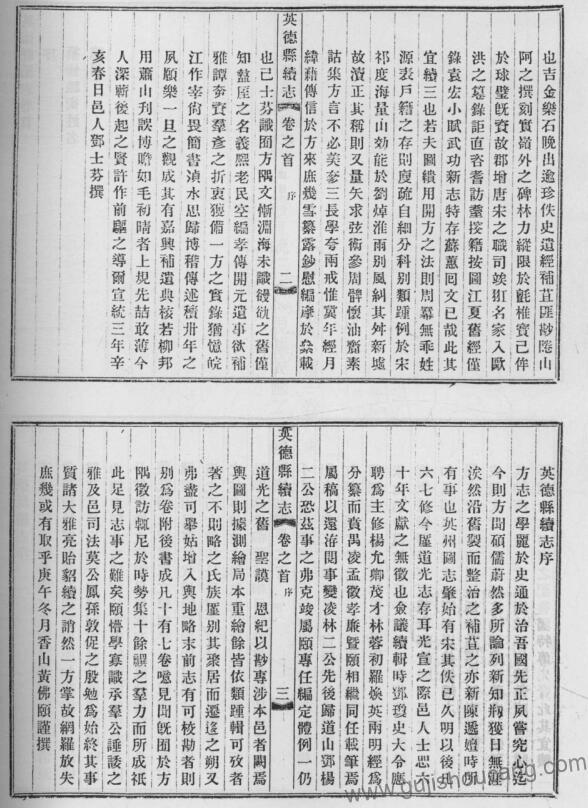 也吉金樂石晚出逾珍佚史遺經補苴匪尠陸山
阿之撰刻實嶺外之碑林力縱限於氈椎寶已侔
於球璧旣賮故郡增唐宋之職司竣班名家入歐
洪之墓錄詎直咨耆訪耋接籍按圖江夏舊經僅
錄袁宏小賦武功新志特存蘇蕙回文已哉此其
宜續三也若夫圖繢用開方之法則周羃無乖姓
源表戶籍之存則疏自細分科別類踵例於宋
祁度海量山効能於劉焯淮雨別風糾其舛新墟
故瀆正其稱則又量矢求弦術參周髀懷油齎素
詁集方言不必美奓三長學夸兩戒惟冀年經月
緯藉傳信於方來庶幾雪纂露鈔慰編摩於載
英德縣續志 卷之首 序 二
也已士芬識囿方隅文慚淵海未識之舊僅
知盩厔之名義熙老民空編孝傳開元遺事欲補
雅譚奈賮羣彥之折衷獲備一方之實錄猶憶皖
江作宰尙畏簡書湞水思歸博稽傳述積卅年之
夙願樂一旦之觀成其有嘉興補遺典核若柳邦
用蕭山刋誤博贍如毛初晴者上規先喆敢薄今
人深蘄後起之賢許作前驅之導爾宣統三年辛
亥春日邑人鄧士芬撰
英德縣續志序
方志之學麗於史通於治吾國先正夙嘗究心迄
今則方聞碩儒蔚然多所論列新知剏獲日無涯
涘然沿舊製而整治之補苴之亦新陳遞嬗時所
有事也英州圖志肇始有宋其佚已久明以後凡
六七修今廑道光志存耳光宣之際邑人士悤六
十年文獻之無徵也僉議續輯時鄧瓊史大令應
聘爲主修楊允卿茂才林蓉初羅煥英兩明經爲
分纂而賁禺凌孟徵孝廉曁頤相繼同任載筆焉
屬稿以還洊閱事變凌林二公先後歸道山鄧楊
二公恐茲事之弗克竣屬頤專任編定體例一仍
英德縣續志 卷之首 序 三
道光之舊 聖謨 恩紀以尠專涉本邑者闕焉
輿圖則據測繪局本重繪餘皆依類踵輯可攷者
著之不則略之氏族厪別其聚居而遷迻之朔又
弗盡可舉姑增入輿地略末前志有可校勘者則
別爲卷附後書成凡十有七卷噫見聞旣囿於方
隅徵訪輒尼於時勢集十餘禩之羣力而所成祗
此足見志事之難矣頤懵學寡識承羣公諈諉之
雅及邑司法莫公鳳孫敦促之殷勉爲始終其事
質諸大雅亮貽貂續之誚然一方掌故網羅放失
庶幾或有取乎庚午冬月香山黃佛頤謹撰
www.gujishouzang.com